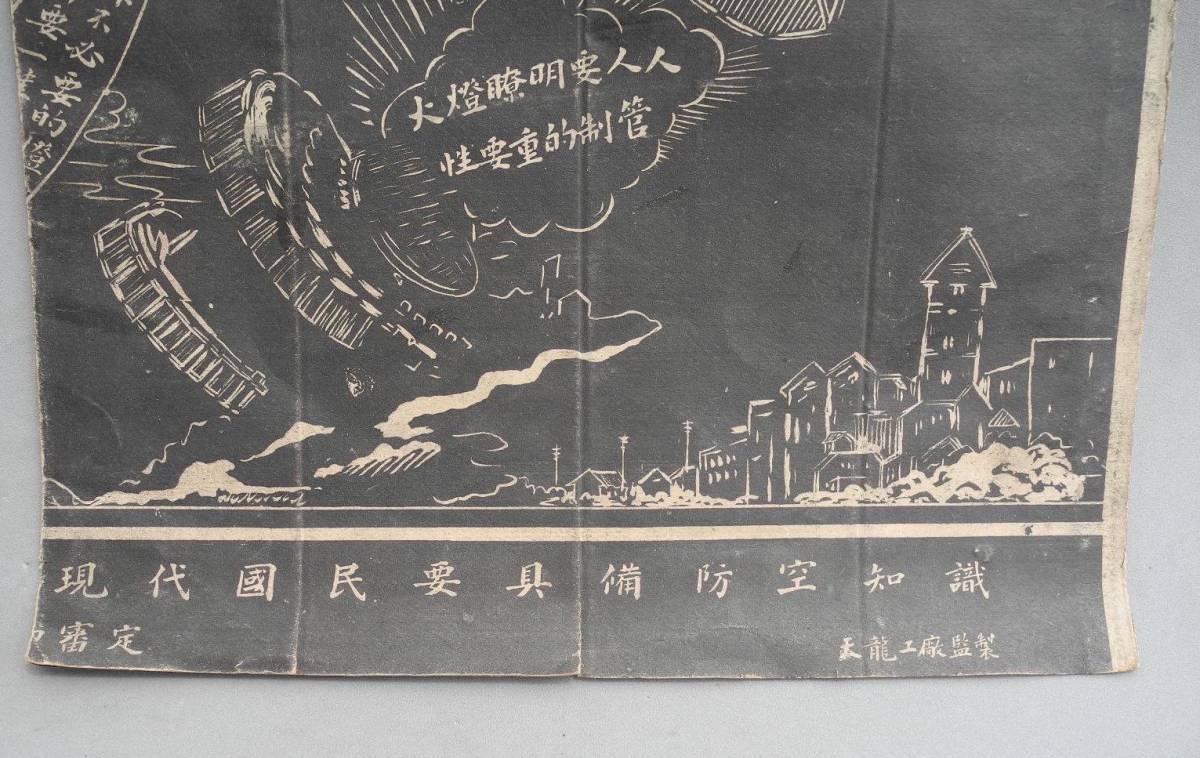 不必要的燈
人人要明瞭燈火
管制的重要性
現代國民要具備防空知識
審定
天龍工廠監製